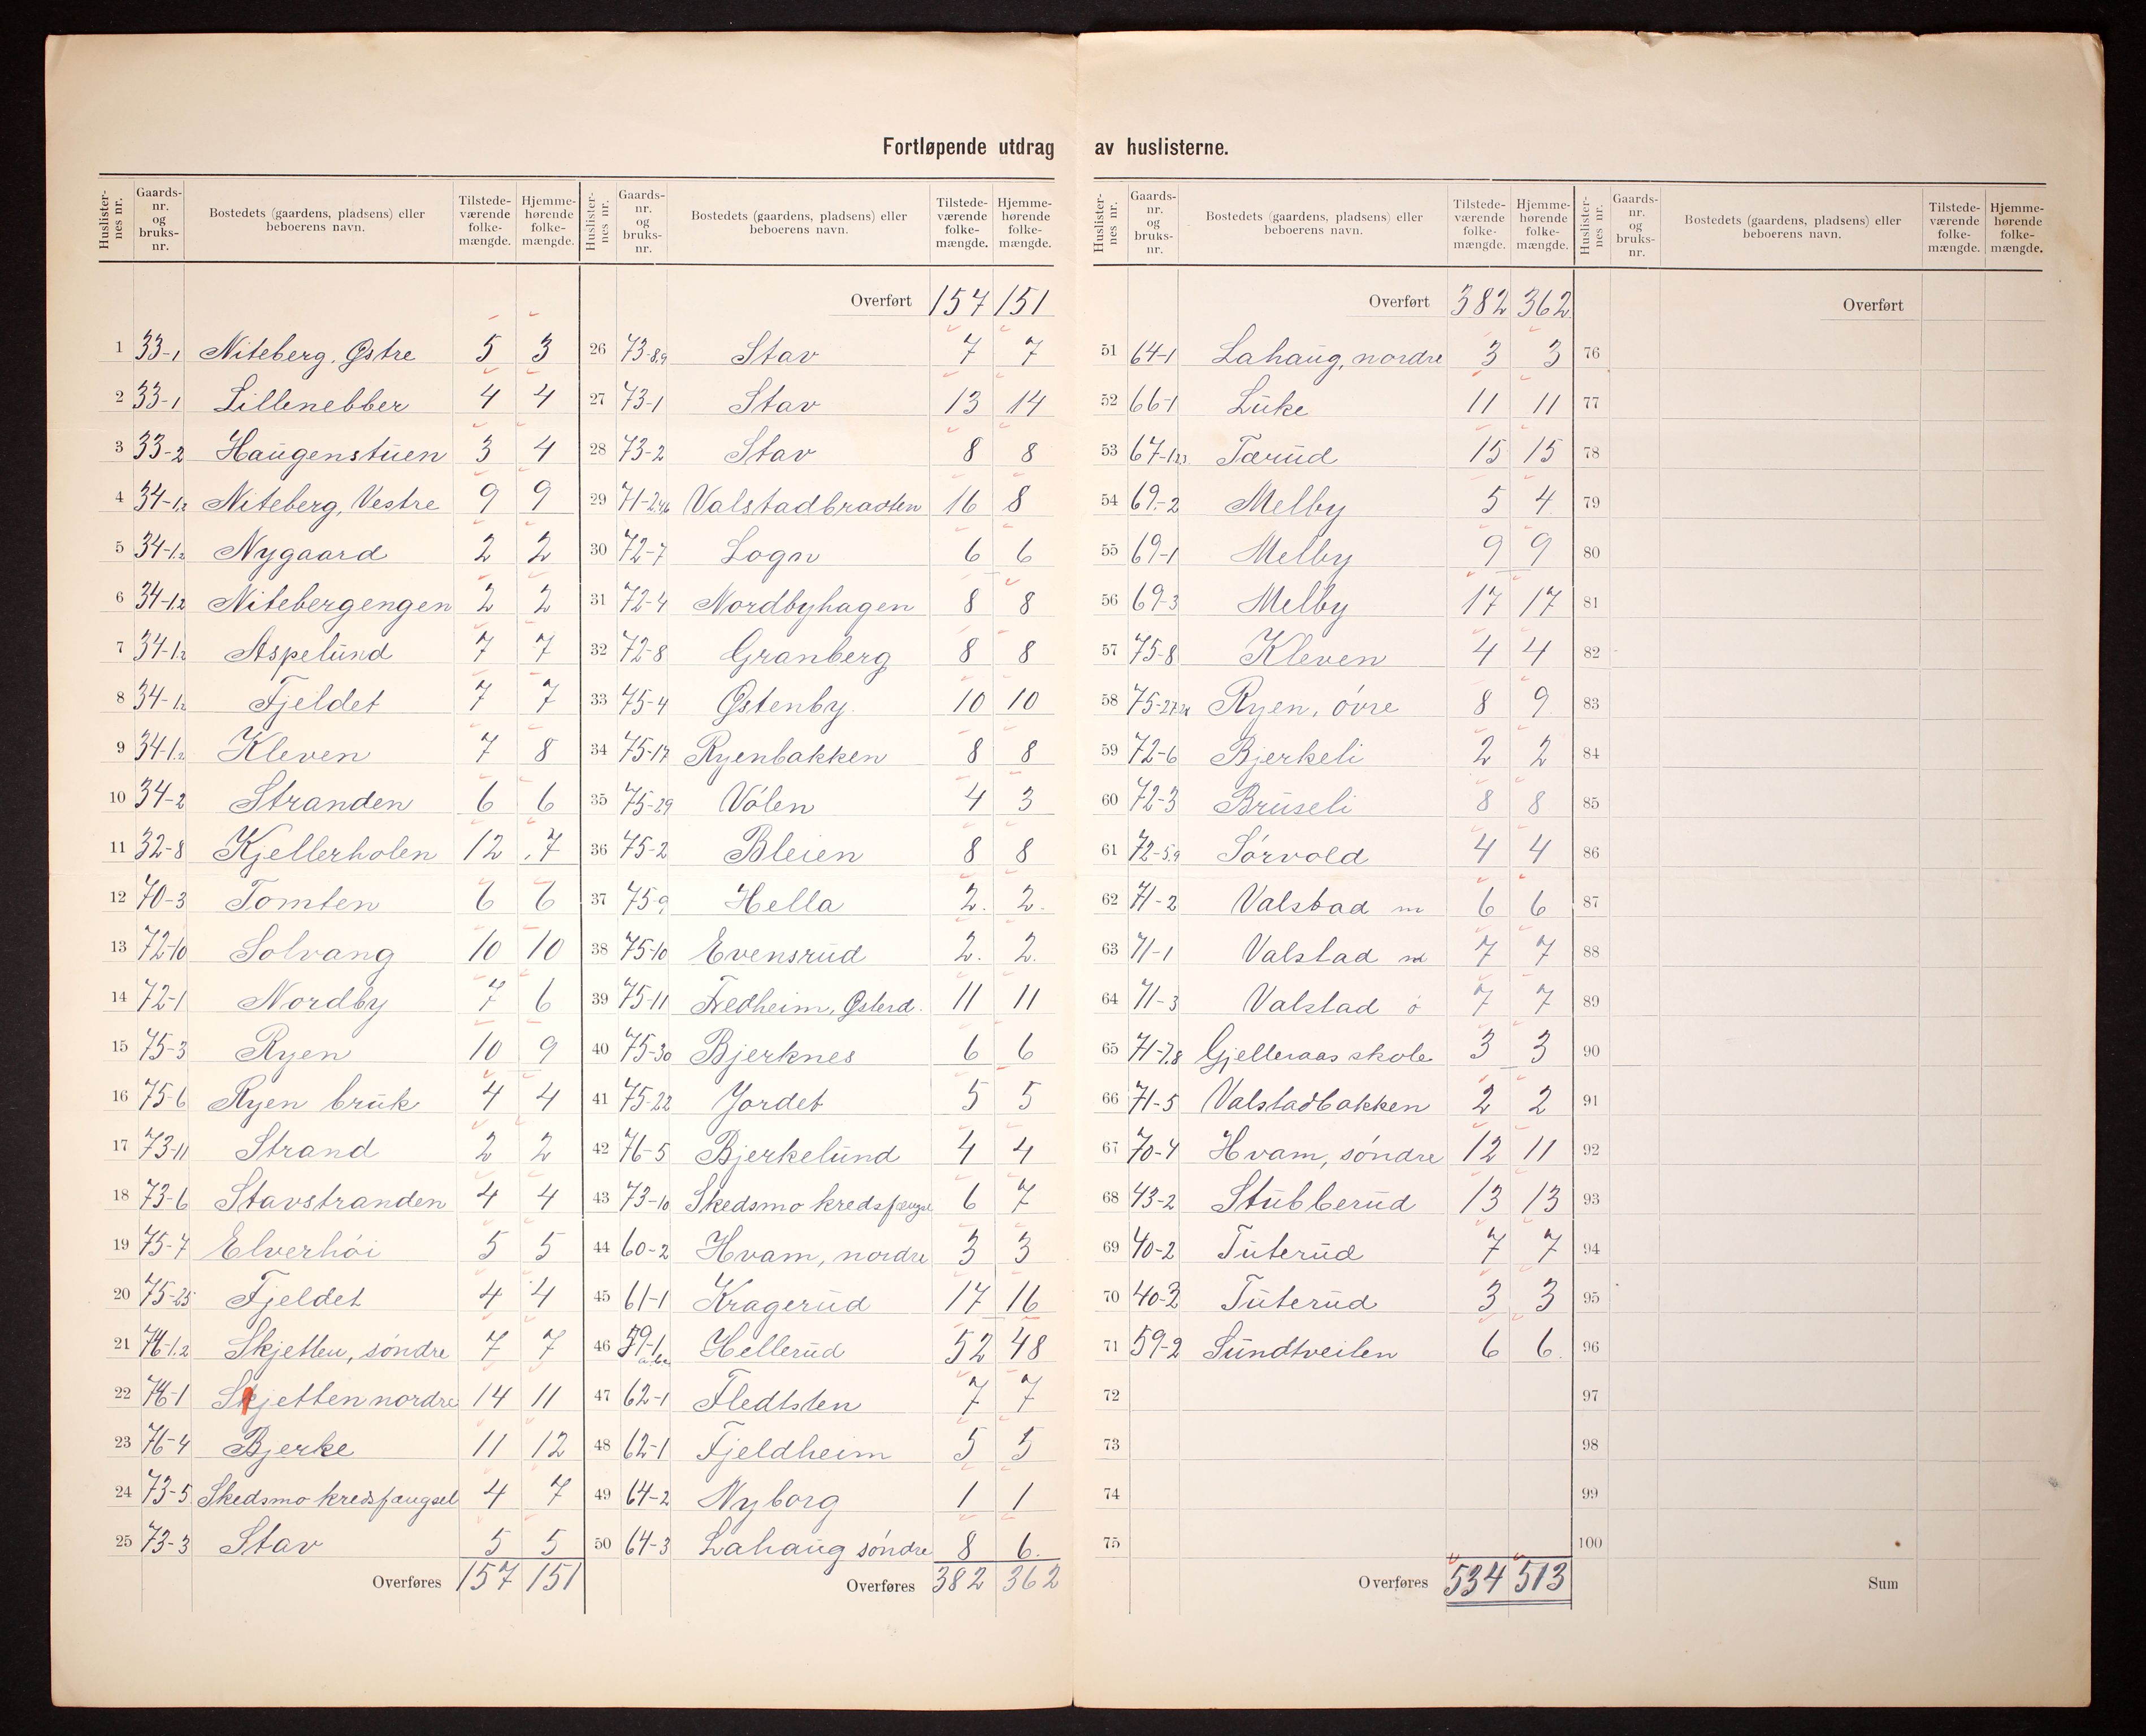 Fortløpende utdrag av huslisterne.
Huslister-nes nr. Gaards-nr. og bruks-nr. Bostedets (gaardens, pladsens) eller beboerens navn. Tilstede-værende folke-mængde. Hjemme-hørende folke-mængde.
1 33-1 Niteberg, Østre 5 3
2 33-1 Lillenebber 4 4
3 33-2 Haugenstuen 3 4
4 34-1,2 Niteberg, Vestre 9 9
5 34-1,2 Nygaard 2 2
6 34-1,2 Nitebergengen 2 2
7 34-1,2 Aspelund 7 7
8 34-1,2 Fjeldet 7 7
9 34-1,2 Kleven 7 8
10 34-2 Stranden 6 6
11 32-8 Kjellerholen 12 7
12 70-3 Tomten 6 6
13 72-10 Solvang 10 10
14 72-1 Nordby 7 6
15 75-3 Ryen 10 9
16 75-6 Ryen bruk 4 4
17 73-11 Strand 2 2
18 73-6 Stavstranden 4 4
19 75-7 Elverhöi 5 5
20 75-25 Fjeldet 4 4
21 Skjetten, søndre 7 7
22 Skjetten nordre 14 11
23 76-4 Bjerke 11 12
24 73-5 Skedsmo kredsfængsel 4 7
25 73-3 Stav 5 5
Overføres 157 151
Huslister-nes nr. Gaards-nr. og bruks-nr. Bostedets (gaardens, pladsens) eller beboerens navn. Tilstede-værende folke-mængde. Hjemme-hørende folke-mængde.
Overført 157 151
26 73-8,9 Stav 7 7
27 73-1 Stav 13 14
28 73-2 Stav 8 8
29 71-2,4,6 Valstadbraaten 16 8
30 72-7 Logn 6 6
31 72-4 Nordbyhagen 8 8
32 72-8 Granberg 8 8
33 75-4 Østenby 10 10
34 75-17 Ryenbakken 8 8
35 75-29 Vólen 4 3
36 75-2 Bleien 8 8
37 75-9 Hella 2. 2.
38 75-10 Evensrud 2. 2.
39 75-11 Fredheim, Østerd. 11 11
40 75-30 Bjerknes 6 6
41 75-22 Jordet 5 5
42 76-5 Bjerkelund 4 4
43 73-10 Skedsmo kredsfængs. 6 7
44 60-2 Hvam, nordre 3 3
45 61-1 Kragerud 17 16
46 59-1 Hellerud 52 48
47 62-1 Fledtsten 7 7
48 62-1 Fjeldheim 5 5
49 64-2 Nyborg 1 1
50 64-3 Lahaug søndre 8 6.
Overføres 382 362
Huslister-nes nr. Gaards-nr. og bruks-nr. Bostedets (gaardens, pladsens) eller beboerens navn. Tilstede-værende folke-mængde. Hjemme-hørende folke-mængde.
Overført 382 362.
51 64-1 Lahaug, nordre 3 3
52 66-1 Luke 11 11
53 67-1,2,3 Tærud 15 15
54 69-2 Melby 5 4
55 69-1 Melby 9 9
56 69-3 Melby 17 17
57 75-8 Kleven 4 4
58 Ryen, óvre 8 9
59 72-6 Bjerkeli 2 2
60 72-3 Bruseli 8 8
61 72-5,9 Sórvold 4 4
62 71-2 Valstad m 6 6
63 71-1 Valstad 7 7
64 71-3 Valstad ó 7 7
65 71-7,8 Gjelleraas skole 3 3
66 71-5 Valstadbakken 2 2
67 70-4 Hvam, sóndre 12 11
68 43-2 Stubberud 13 13
69 40-2 Tuterud 7 7
70 40-3 Tuterud 3 3
71 59-2 Sundtveilen 6 6.
72
73
74
75
Overføres 534 513
Huslister-nes nr. Gaards-nr. og bruks-nr. Bostedets (gaardens, pladsens) eller beboerens navn. Tilstede-værende folke-mængde. Hjemme-hørende folke-mængde.
Overført
76
77
78
79
80
81
82
83
84
85
86
87
88
89
90
91
92
93
94
95
96
97
98
99
100
Sum